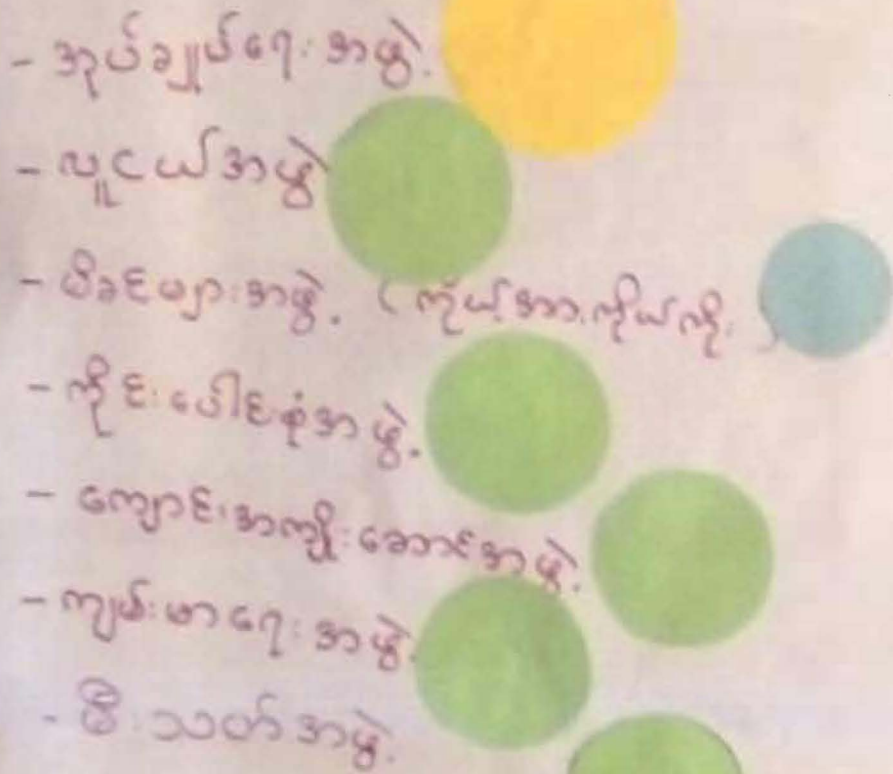 - အုပ်ချုပ်ရေးအဖွဲ့.
- လူငယ်အဖွဲ့
- မိခင်များအဖွဲ့. (ကိုယ့်အားကိုယ်ကိုး)
- ကိုင်းပေါင်းစုံအဖွဲ့.
- ကျောင်းအကျိုးဆောင်အဖွဲ့.
- ကျမ်းမာရေးအဖွဲ့.
- မီးသတ်အဖွဲ့.